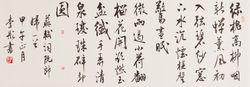 綠槐高柳咽
新蟬薰風初
入弦碧紗窗
下水沉煙棋
聲驚晝眠
微雨過小荷翻
榴花開欲燃玉
盆纖手弄清
泉瓊珠碎卻
圓
蘇軾詞阮郎
歸一首
甲午正月